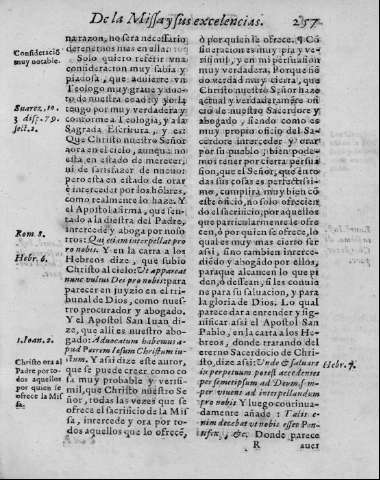 De la Missa y sus excelencias. 257
na razon, no sera necessario
derenernos mas en esso.
Solo quiero referir vna
consideracion muy sabia y
piadosa, que aduierte vn
Teologo muy graue y docto
de nuestra edad: y yo la
tengo por muy verdadera y
conforme a Teologia, y a la
Sagrada Escritura, y es:
Que Christo nuestro Señor
aora en el cielo, aunque no
esta en estado de merecer,
ni de satisfazer de nueuo:
pero esta en estado de orar
è interceder por los hõbres,
como realmente lo haze. Y
el Apostol afirma, que sentado
a la diestra del Padre,
intercede y aboga por nosotros:
Qui etiam interpellat pro
nobis. Y en la carta a los
Hebreos dize, que subio
Christo al cielo: Vt appareat
nunc vultus Dei pro nobis: para
parecer en juyzio en el tribunal
de Dios, como nuestro
procurador y abogado.
Y el Apostol San Iuan dize,
que alli es nuestro abogado:
Aduocatum habemus apud
Patrem Iesum Christum iustum.
Y assi dize este autor,
que se puede creer como cosa
muy probable y verisimil,
que Christo nuestro Señor,
todas las vezes que se
ofrece el sacrificio de la Missa,
intercede y ora por todos
aquellos que lo ofrecẽ,
Consideraciõ
muy notable.
Suarez, to.
3. disp. 79.
sect. 2.
Rom 8.
Hebr. 6.
1. Ioan. 2.
Christo ora al
Padre por todos
aquellos
por quien se
ofrece la Missa
ò por quien se ofrece. Consideracion
es muy pia y verisimil,
y en mi persuasion
muy verdadera. Porque no
ay duda que
Christo nuestro Señor haze
actual y verdaderamẽte oficio
de nuestro Sacerdote y
abogado, siendo como es
muy propio oficio del Sacerdote
interceder y orar
por su pueblo; bien podemos
tener por cierta persuasion,
que el Señor, que en todas
sus cosas es perfectissimo,
cumplira muy bien cõ
este oficio, no solo ofreciendo
el sacrificio, por aquellos
que particularmente le ofrecen,
o por quien le ofrecen, lo
qual es muy mas cierto ser
assi, sino tambien intercediẽdo
y abogando por ellos,
paraque alcancen lo que piden,
ò dessean, si les conuiene
para su saluacion, y para
la gloria de Dios. Lo qual
parece dara enrender y significar
assi el Apostol San
Pablo, en la carta a los Hebreos,
donde tratando del
eterno Sacerdocio de Christo,
dize assi: Vnde & saluare
in perpetuum potest accedentes
per semetipsum ad Deum, semper
viuens ad interpellandum
pro nobis. Y luego continuadamente
añade: Talis enim
decebat vt nobis esset Pontifex,
&c. Donde parece
Hebr. 7.
R
auer